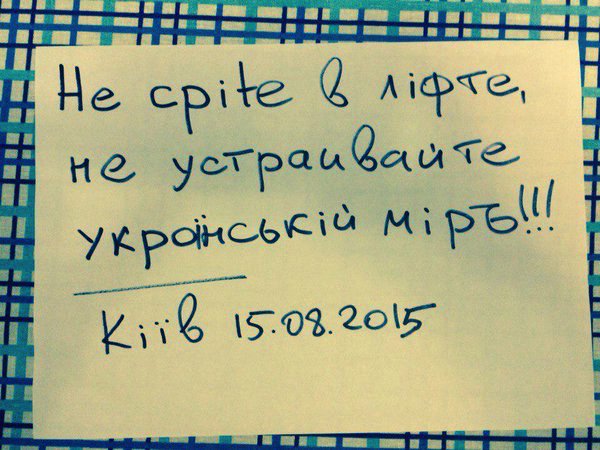 Не сріte в ліфте,
не устраивайте
украінській міръ!!!
Кіїв 15.08.2015